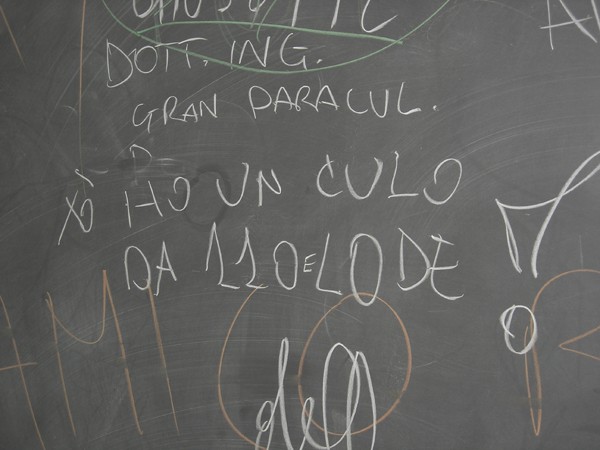 DOTT. ING.
GRAN PARACUL.
Xò HO UN CULO
DA 110 E LODE
dell